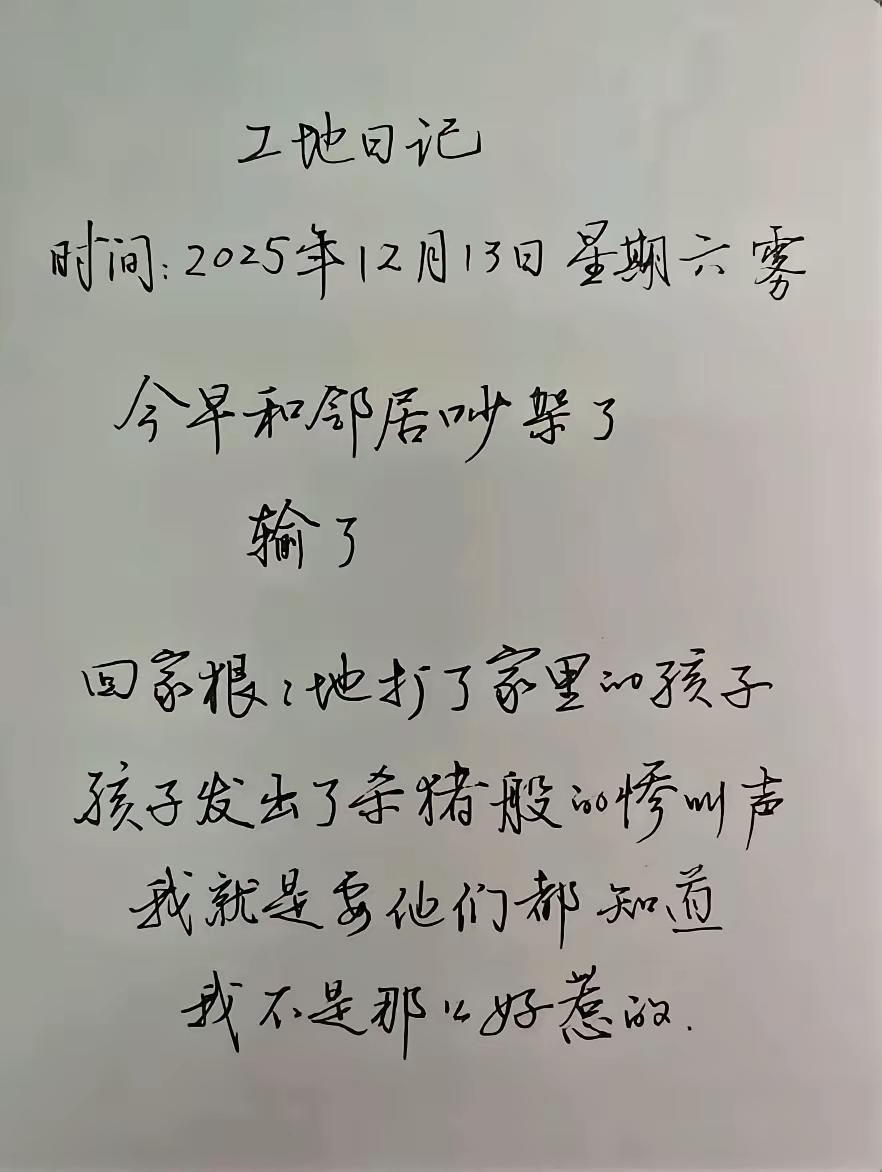 工地日记
时间:2025年12月13日 星期六 雾
今早和邻居吵架了
输了
回家狠狠地打了家里的孩子
孩子发出了杀猪般的惨叫声
我就是要他们都知道
我不是那么好惹的.